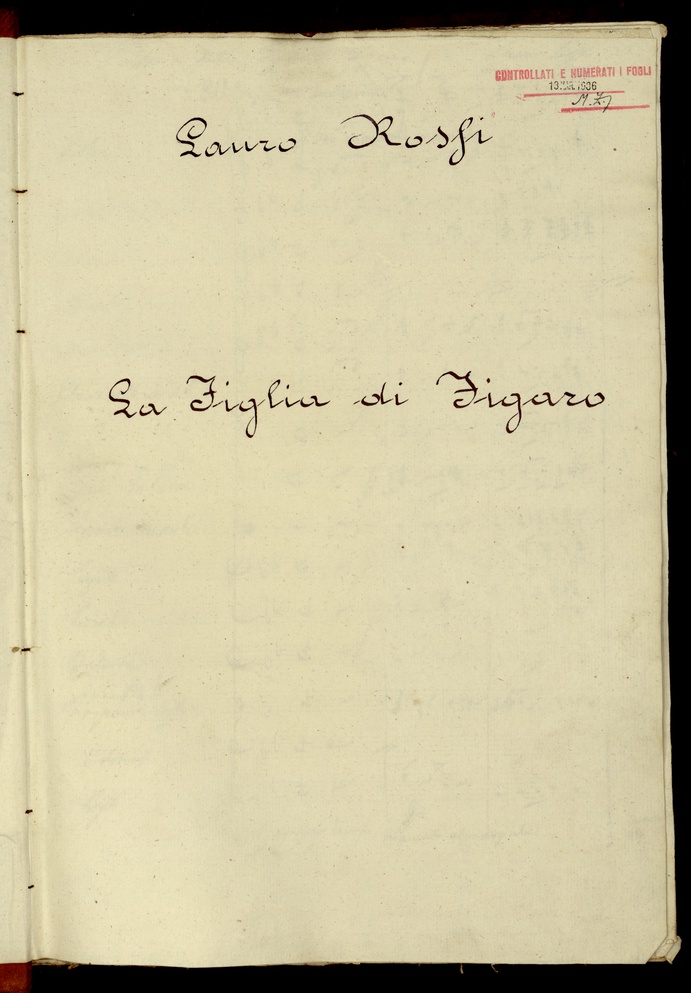 CONTROLLATI E NUMERATI I FOGLI
Lauro Rossi
La Figlia di Figaro